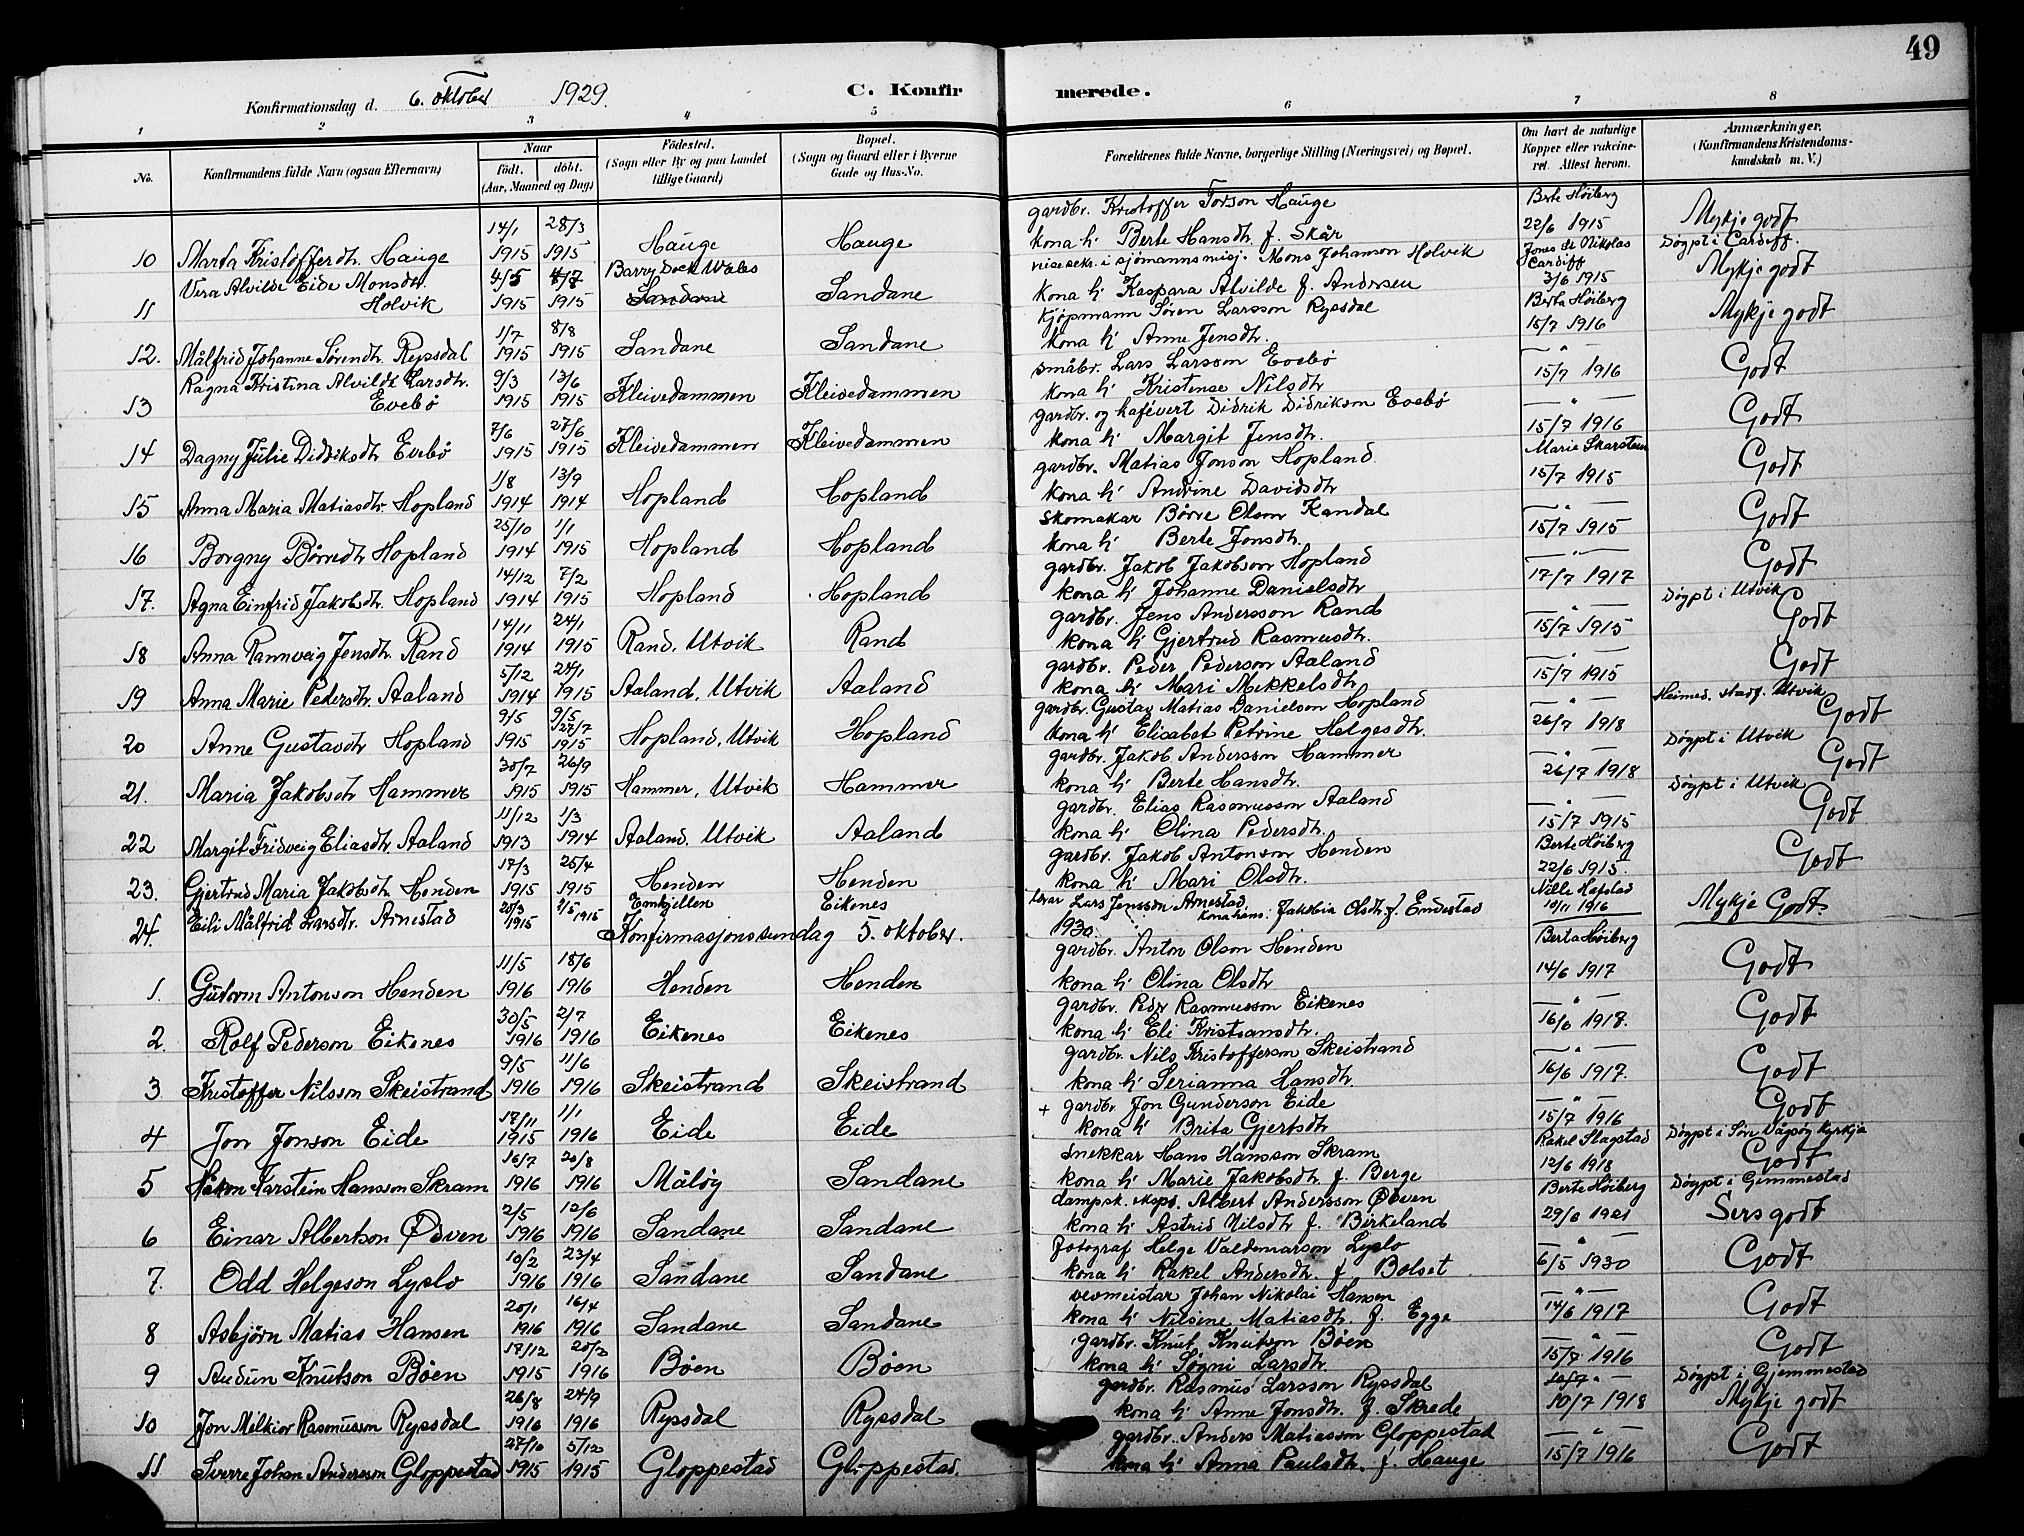 49
Konfirmationsdag d. 6. oktober 1929. C. Konfirmerede.
1 2 3 4 5 6 7 8
No. Konfirmandens fulde Navn (ogsaa Efternavn) Naar født. døbt. (Aar, Maaned og Dag) Fødested. (Sogn eller By og paa Landet tillige Gaard) Bopæl. (Sogn og Gaard eller i Byerne Gade og Hus-No. Forældrenes fulde Navne, borgerlige Stilling (Næringsvei) og Bopæl. Om havt de naturlige Kopper eller vaccineret. Attest herom. Anmærkninger. (Konfirmandens Kristendomskundskab m. V.)
10 Marta Kristofferdtr. Hauge 14/1 1915 28/3 1915 Hauge Hauge gardbr. Kristoffer Torson Hauge kona h' Berte Hansdtr. f. Skår Berte Höiberg 22/6 1915 Mykje godt
11 Vera Alvilde Eide Monsdtr. Holvik 4/5 1915 4/7 1915 Barry Dock Wales Sandane Sandane visesekr. i sjömannsmisj. Mons Johanson Holvik kona h' Kaspara Alvilde f. Andersen Jones St Nikolas Cardiff 3/6 1915 Döypt i Cardiff. Mykje godt
12. Målfrid Johanne Sörendtr. Ryssdal 1/7 1915 8/8 1915 Sandane Sandane Kjöpmann Sören Larsson Ryssdal kona h' Anne Jensdtr. Berta Höiberg 15/7 1916 Mykje godt
13 Ragna Kristina Alvilde Larsdtr. Evebø 9/3 1915 13/6 1915 Kleivedammen Kleivedammen småbr. Lars Larsson Evebø kona h' Kristense Nilsdtr — " — 15/7 1916 Godt
14 Dagny Julie Didriksdtr Evebø 7/6 1915 27/6 1915 Kleivedammen Kleivedammen gardbr. og kafévert Didrik Didrikson Evebø kona h' Margit Jensdtr. — " — 15/7 1916 Godt
15 Anna Maria Matiasdtr. Hopland 1/8 1914 13/9 1914 Hopland Hopland gardbr. Matias Jonson Hopland kona h' Andrine Davidsdtr Marie Skarstein 15/7 1915 Godt
16 Borgny Börredtr Hopland 25/10 1914 1/1 1915 Hopland Hopland Skomakar Börre Olson Kandal kona h' Berte Jonsdtr. — " — 15/7 1915 Godt
17. Agna Einfrid Jakobsdtr. Hopland 14/12 1914 7/2 1915 Hopland Hopland gardbr. Jakob Jakobson Hopland kona h' Johanne Danielsdtr — " — 17/7 1917 Godt
18 Anna Rannveig Jensdtr. Rand 14/11 1914 24/1 1915 Rand, Utvik Rand gardbr. Jens Andersson Rand kona h' Gjertrud Rasmusdtr. — " — 15/7 1915 Döypt i Utvik Godt
19 Anna Marie Pedersdtr. Aaland 5/12 1914 24/1 1915 Aaland, Utvik Aaland gardbr. Peder Pederson Aaland kona h' Mari Mikkelsdtr — " — 15/7 1915 Godt
20 Anne Gustavdtr Hopland 9/5 1915 9/5 27/7 1915 Hopland, Utvik Hopland gardbr. Gustav Matias Danielson Hopland kona h' Elisabet Petrine Helgesdtr. — " — 26/7 1918 Heimed. stadf. Utvik Godt
21. Maria Jakobsdtr Hammer 30/7 1915 26/9 1915 Hammer, Utvik Hammer gardbr. Jakob Andersson Hammer kona h' Berte Hansdtr. — " — 26/7 1918 Döypt i Utvik Godt
22 Margit Fridveig Eliasdtr. Aaland 11/12 1913 1/3 1914 Aaland, Utvik Aaland gardbr. Elias Rasmusson Aaland kona h' Olina Pedersdtr. — " — 15/7 1915 Döypt i Utvik Godt
23. Gjertrud Maria Jakobsdtr Henden 17/3 1915 25/4 1915 Henden Henden gardbr. Jakob Antonson Henden kona h' Mari Olsdtr. Berte Höiberg 22/6 1915. Godt
24. Eili Målfrid Larsdtr. Arnestad 20/3 1915 2/5 1915 Eikenes Lars Jensson Arnestad kona hans: Jakobia Olsdtr f. Endestad Nille Hafstad 10/11 1916 Mykje Godt.
Konfirmasjonssundag 5. oktober. 1930.
1. Guttorm Antonson Henden 11/5 1916 18/6 1916 Henden Henden gardbr. Anton Olson Henden kona h' Olina Olsdtr Berta Höiberg 14/6 1917 Godt
2. Rolf Pederson Eikenes 30/5 1916 2/7 1916 Eikenes Eikenes gardbr. Peder Rasmusson Eikenes kona h' Eli Kristiansdtr. — " — 16/6 1918. Godt
3 Kristoffer Nilsson Skeistrand 9/5 1916 11/6 1916 Skeistrand Skeistrand gardbr. Nils Kristofferson Skeistrand kona h' Serianna Hansdtr — " — 16/6 1917. Godt
4 Jon Jonson Eide 17/11 1915 1/1 1916 Eide Eide + gardbr. Jon Gunderson Eide kona h' Brita Gjertsdtr — " — 15/7 1916 Godt
5 Håkon Karstein Hansson Skram 16/7 1916 20/8 1916 Målöy Sandane Snekkar Hans Hansson Skram kona h' Marie Jakobsdtr f. Berge Rakel Slagstad 12/6 1918 Döypt i Sör Vågsöy Kyrkja Godt
6 Einar Albertson Ødven 2/5 1916 12/6 1916 Sandane Sandane dampsk. eksped. Albert Andersson Ødven kona h' Astrid Nilsdtr f. Birkeland Berte Höiberg 29/6 1921 Döypt i Gimmestad Sers godt
7. Odd Helgeson Lyslo 10/2 1916 23/4 1916 Sandane Sandane fotograf Helge Valdemarson Lyslo kona h' Rakel Andersdtr. f. Bolset — " — 6/5 1930 Godt
8 Asbjörn Matias Hansen 20/1 1916 16/4 1916 Sandane Sandane vevmeistar Johan Nikolai Hansen kona h' Nilsine Matiasdtr. f. Egge — " — 14/6 1917 Godt
9 Audun Knutson Böen 19/12 1915 20/2 1916 Böen Böen gardbr. Knut Knutson Böen kona h' Sögni Larsdtr — " — 15/7 1916 Godt
10 Jon Melkior Rasmusson Ryssdal 26/8 1916 24/9 1916 Ryssdal Ryssdal gardbr. Rasmus Larsson Ryssdal kona h' Anne Jonsdtr. f. Skrede — " — 10/7 1918 Döypt i Gjemmestad Mykje godt
11 Sverre Johan Andersson Gloppestad 27/10 1915 5/12 1915 Gloppestad Gloppestad. gardbr. Anders Matiasson Gloppestad kona h' Anna Paulsdtr. f. Hauge — " — 15/7 1916 Godt